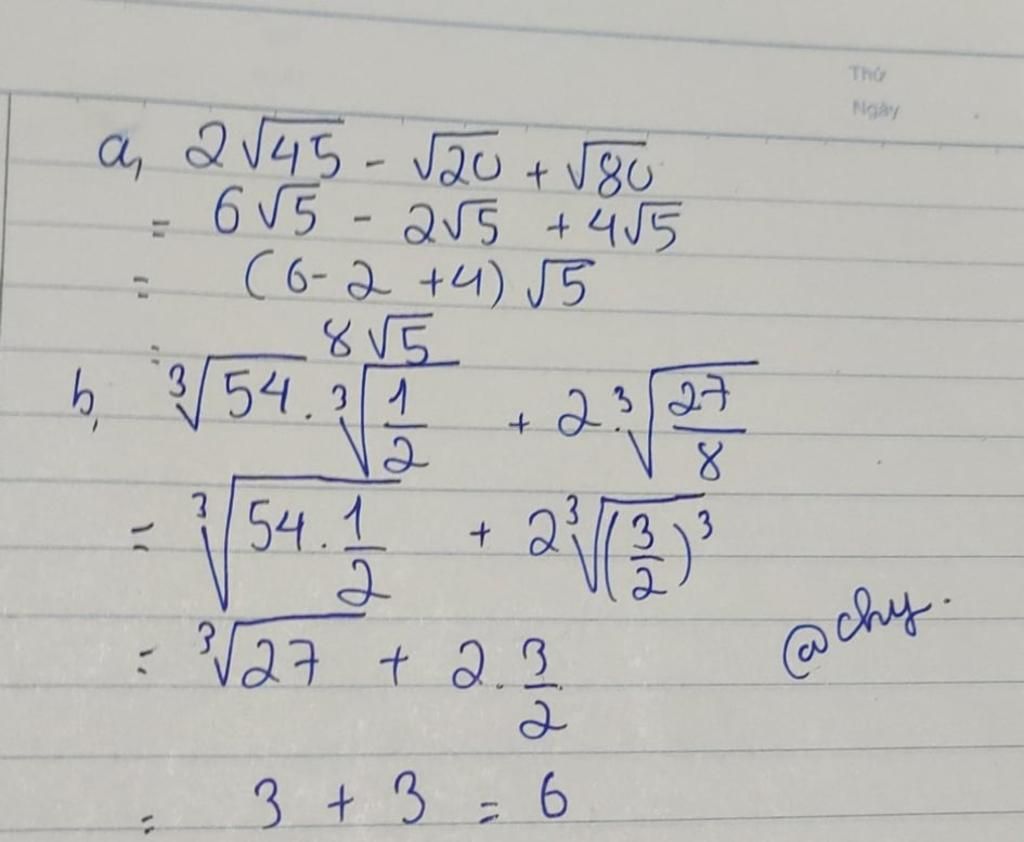 Thứ
Ngày
a, 2√45 - √20 + √80
= 6√5 - 2√5 + 4√5
= (6-2 +4) √5
= 8√5
b, ∛54 . ∛(1/2) + 2.∛(27/8)
= ∛(54 . 1/2) + 2∛((3/2)³)
= ∛27 + 2. 3/2
= 3 + 3 = 6
@chy.